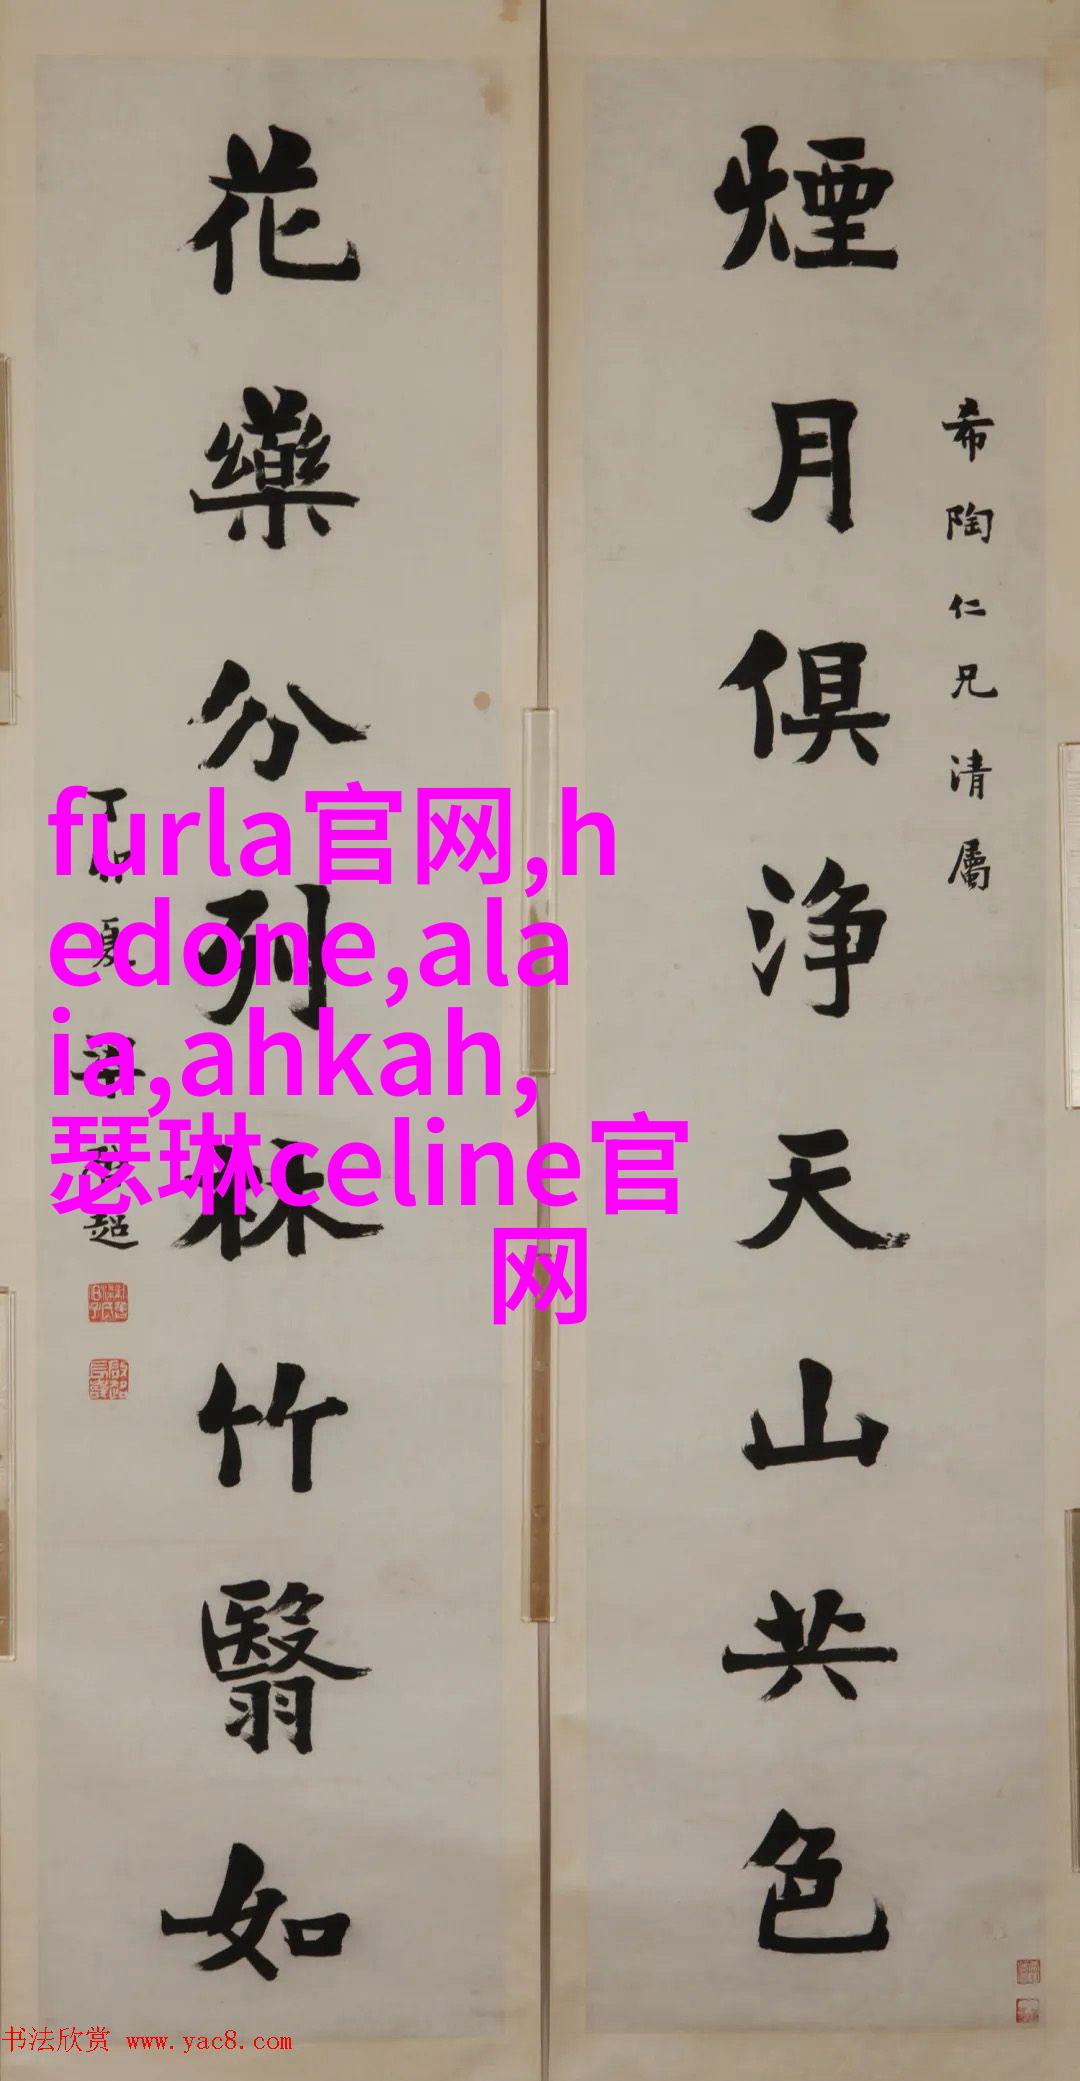 煙月俱浄天山共色
希陶仁兄清屬
花藥分列林竹翳如
丁卯夏 梁啟超
furla官网,h
edone,ala
ia,ahkah,
瑟琳celine官
网
书法欣赏 www.yac8.com